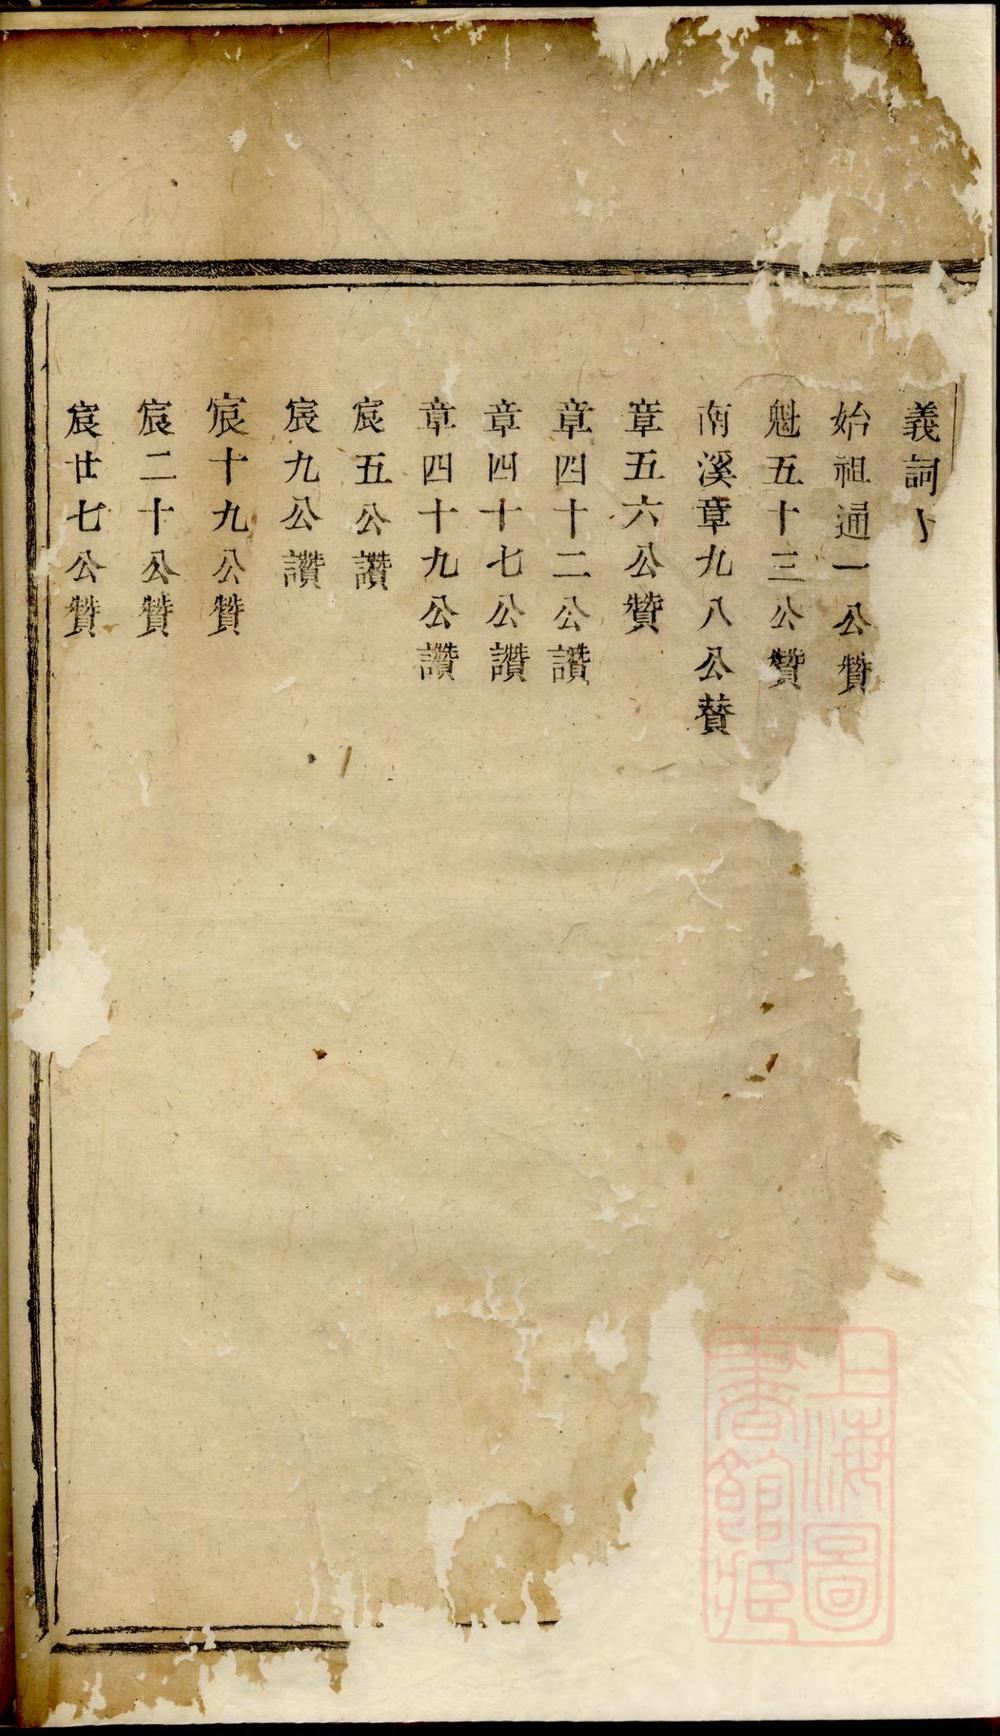 義祠
始祖通一公贊
魁五十三公贊
南溪章九八公賛
章五六公贊
章四十二公讚
章四十七公讚
章四十九公讚
宸五公讚
宸九公讚
宸十九公贊
宸二十公贊
宸廿七公贊
上海圖
書館藏